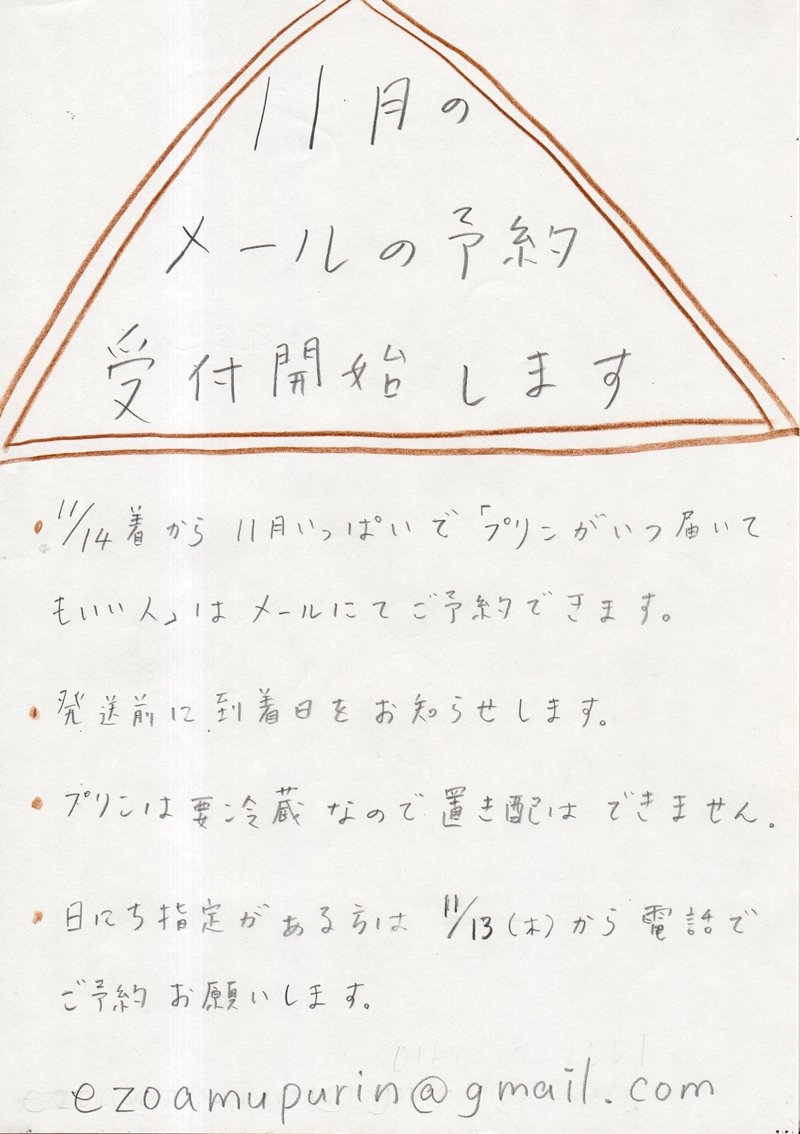 11月の
メールの予約
受付開始します
• 11/14着から 11月いっぱいで「プリンがいつ届いて
もいい人」は メールにてご予約できます。
• 発送前に到着日をお知らせします。
• プリンは要冷蔵なので置き配は できません.
• 日にち指定がある方は 11/13(木)から電話で
ご予約お願いします。
ezoamupurin@gmail.com